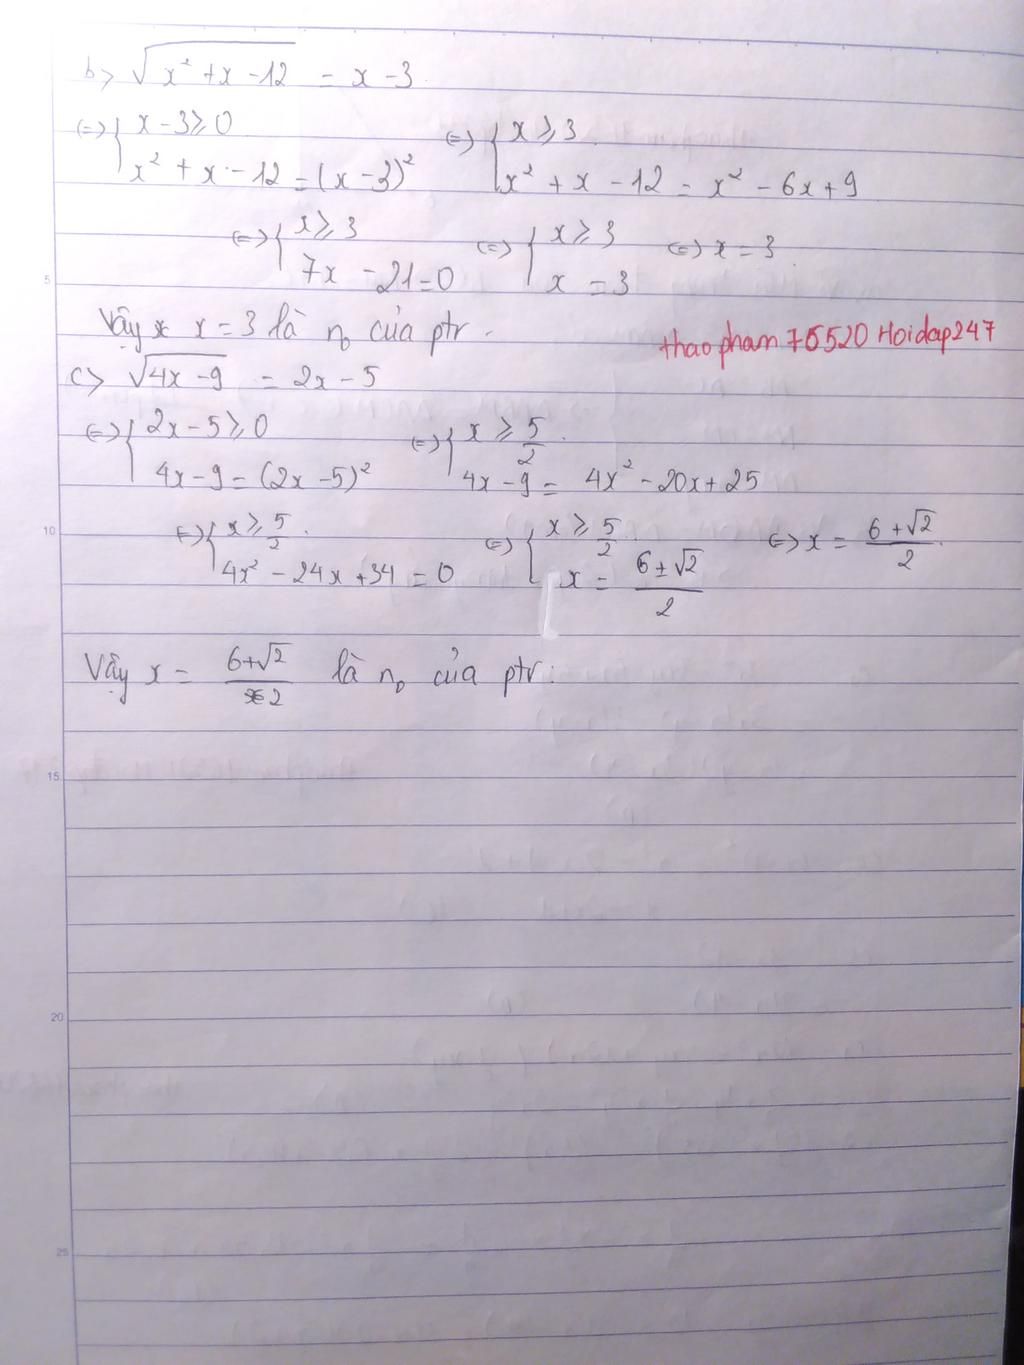 b> √(x² + x - 12) = x - 3
<=> { x - 3 ≥ 0 <=> { x ≥ 3
x² + x - 12 = (x - 3)² x² + x - 12 = x² - 6x + 9
<=> { x ≥ 3 <=> { x ≥ 3 <=> x = 3.
7x - 21 = 0 x = 3
5
Vậy x x = 3 là n₀ của ptr.
thao pham 75520 Hoidap247
c> √(4x - 9) = 2x - 5
<=> { 2x - 5 ≥ 0 <=> { x ≥ 5/2.
4x - 9 = (2x - 5)² 4x - 9 = 4x² - 20x + 25
10
<=> { x ≥ 5/2. <=> { x ≥ 5/2 <=> x = (6 + √2)/2.
4x² - 24x + 34 = 0 x = (6 ± √2)/2
Vậy x = (6 + √2)/2 là n₀ của ptr.
15
20
25